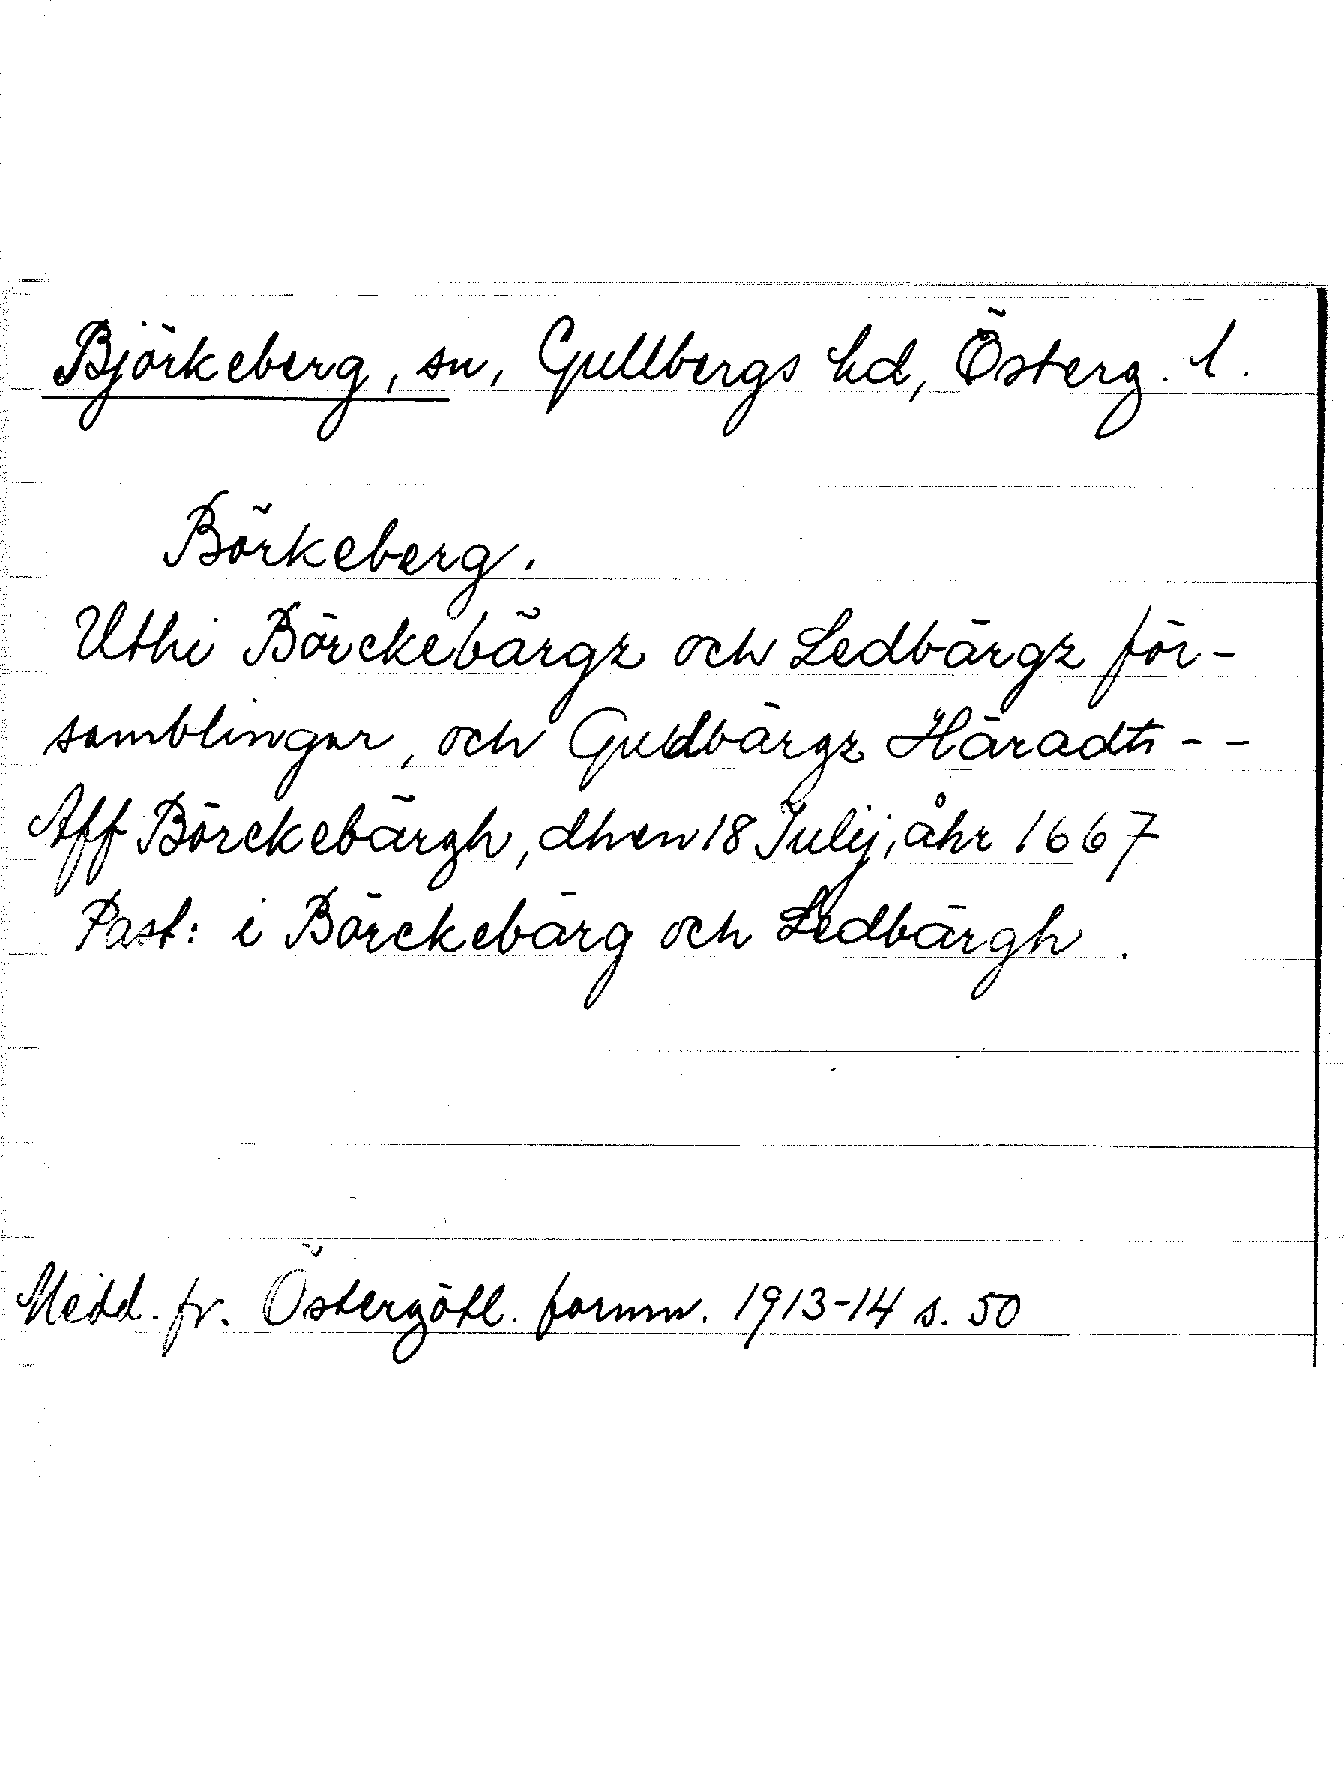 Björkeberg, sn, Gullbergs hd, Österg. l.
Börkeberg.
Uthi Börckebärgz och Ledbärgz för-
samblingar, och Guldbärgz Häradh - -
Aff Börckebärgh, dhen 18 Julij, åhr 1667
Past: i Börckebärg och Ledbärgh.
Medd. fr. Östergötl. fornm. 1913-14 s. 50